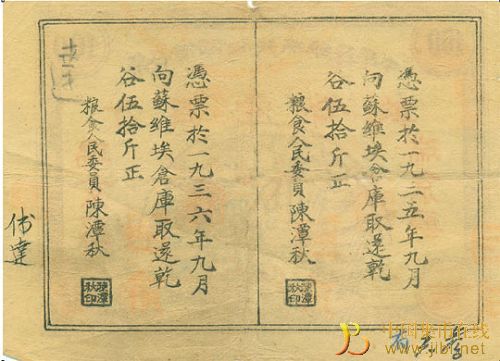 憑票於一九三五年九月
向蘇維埃倉庫取還乾
谷伍拾斤正
粮食人民委員陳潭秋
陳潭秋印
憑票於一九三六年九月
向蘇維埃倉庫取還乾
谷伍拾斤正
粮食人民委員陳潭秋
陳潭秋印
中国集币在线
www.jibi.net